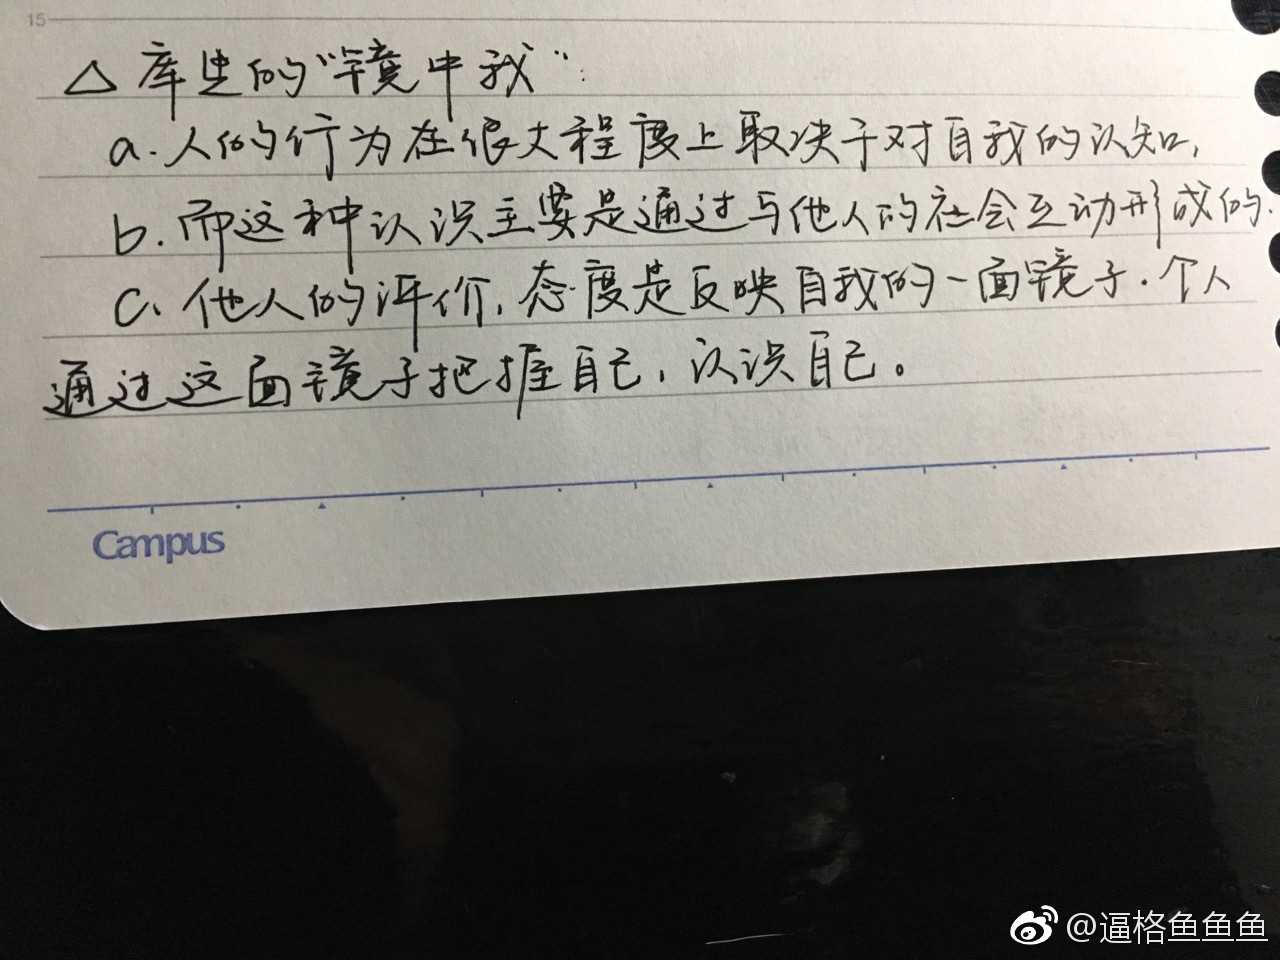 15
△ 库里的“镜中我”：
a. 人的行为在很大程度上取决于对自我的认知,
b. 而这种认识主要是通过与他人的社会互动形成的.
c、他人的评价, 态度是反映自我的一面镜子. 个人
通过这面镜子把握自己, 认识自己。
Campus
@逼格鱼鱼鱼